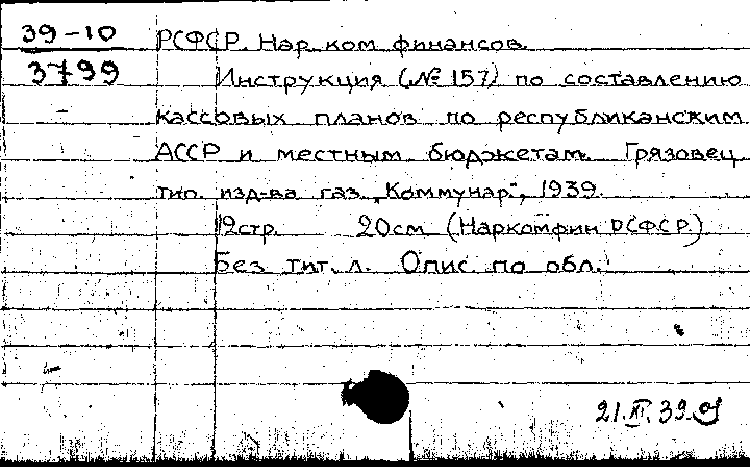 39-10
3799
РСФСР. Нар. ком. финансов.
Инструкция (№ 157) по составлению
кассовых планов по республиканским
АССР и местным бюджетам. Грязовец,
тип. изд-ва газ. „Коммунар", 1939.
12 стр. 20 см. (Наркомфин РСФСР.)
Без тит. л. Опис. по обл.
21.XI.39.